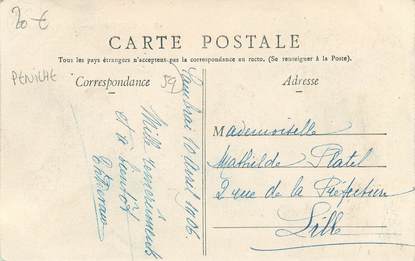 20 €
CARTE POSTALE
Tous les pays étrangers n'acceptent pas la correspondance au recto. (Se renseigner à la Poste).
PENICHE
Correspondance
59
Adresse
Cambrai 10 Avril 1906
Mille remerciements
et à bientôt
Mademoiselle
Mathilde Platel
2 rue de la Préfecture
Lille